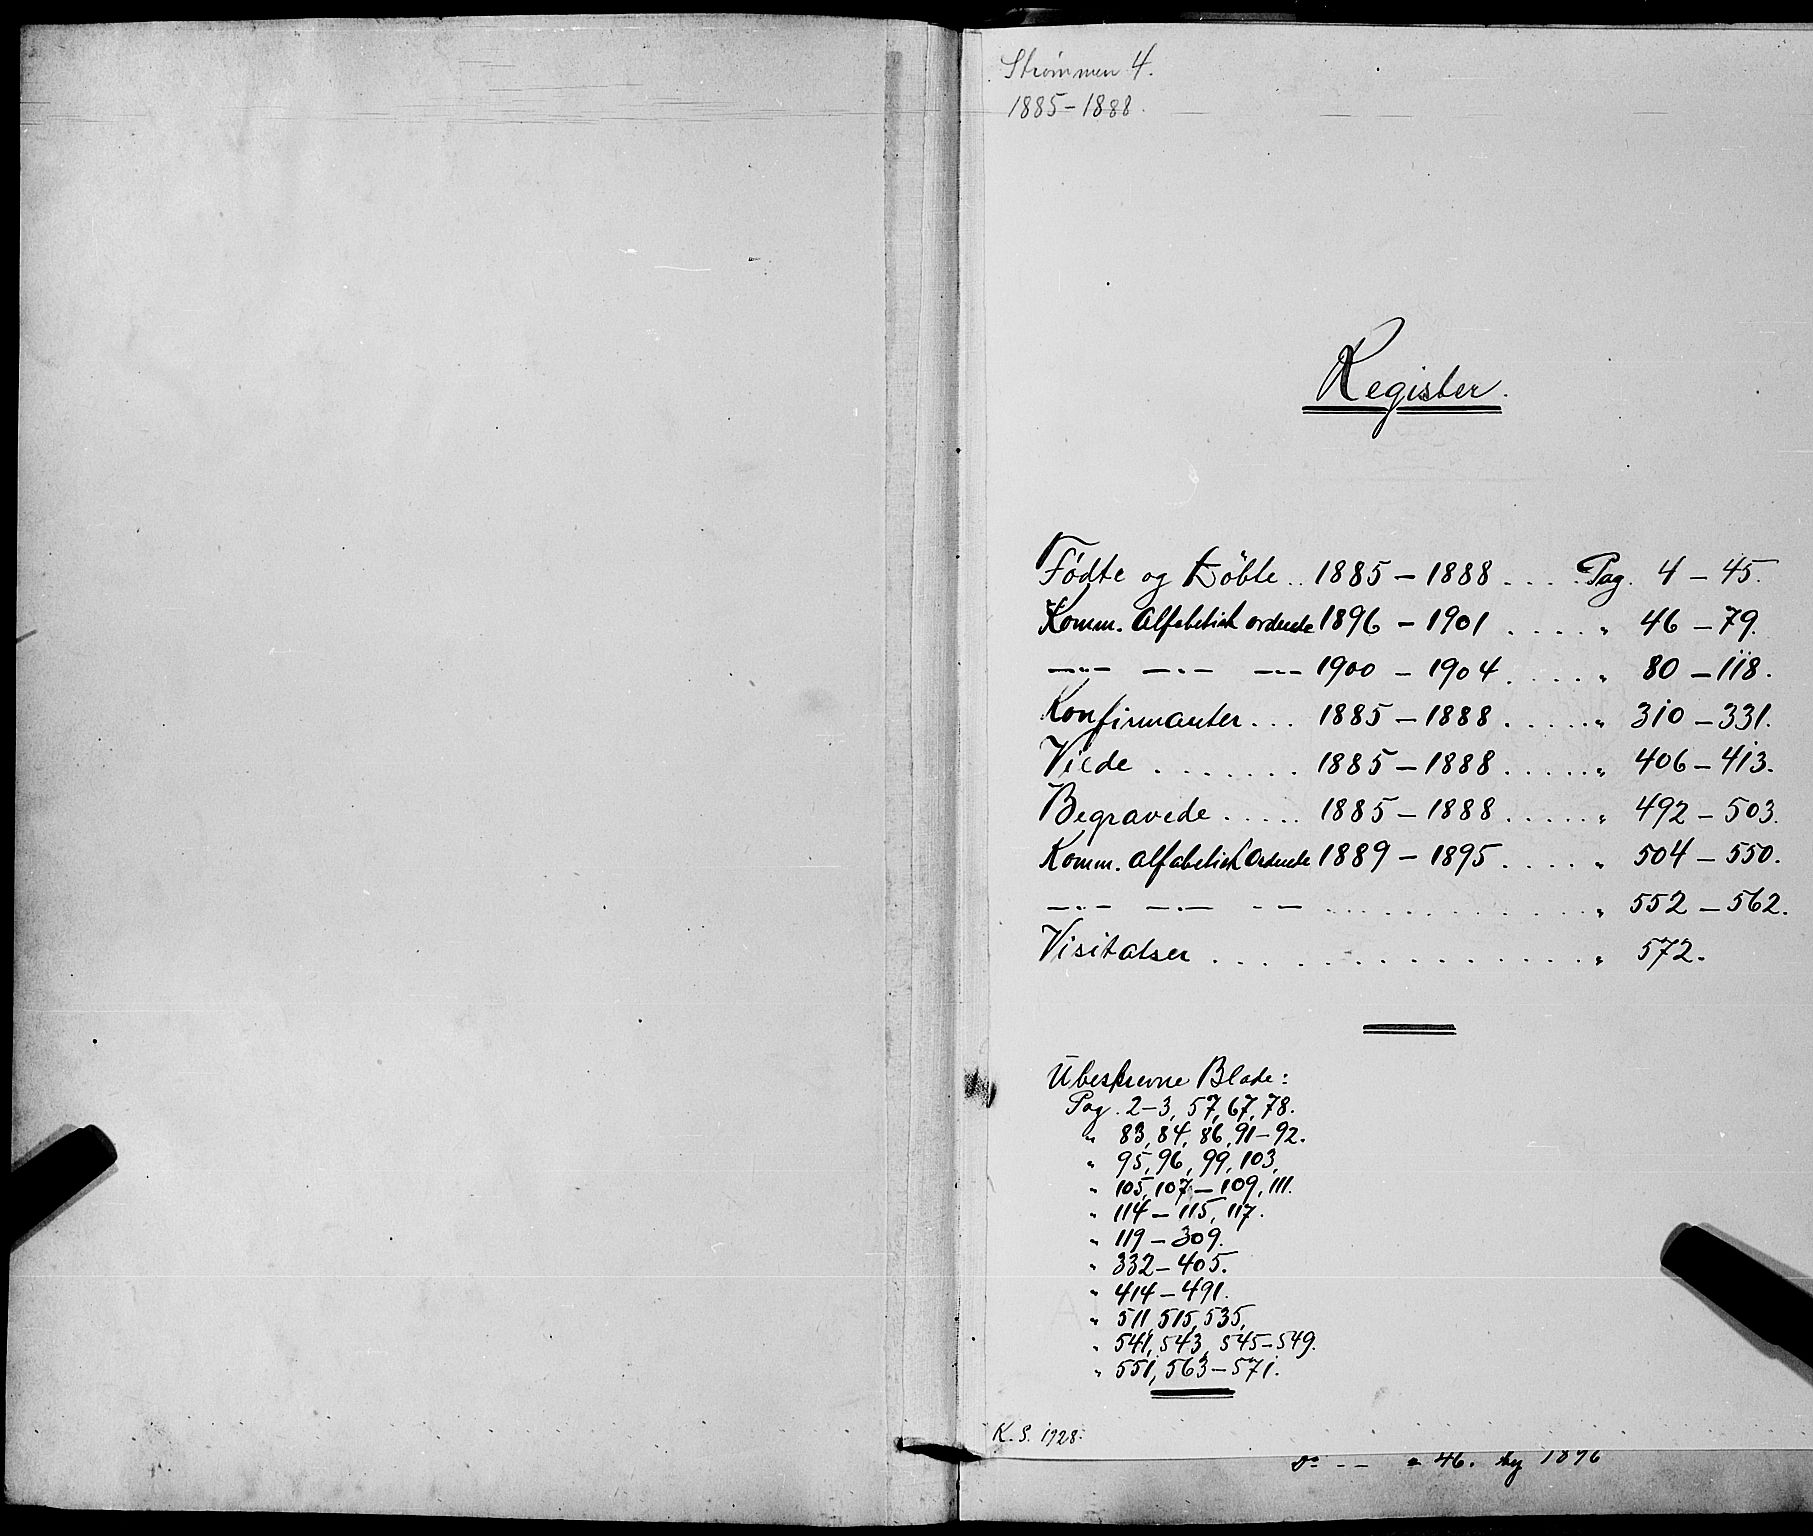 Strømmen 4.
1885-1888.
Register.
Fødte og Döbte .. 1885 - 1888 .... Pag. 4 - 45.
Komm. Alfabetisk ordnede 1896 - 1901 ..... " 46 - 79.
—"— —"— —"— 1900 - 1904 ..... " 80 - 118.
Konfirmanter ... 1885 - 1888 ..... " 310 - 331.
Viede ....... 1885 - 1888 ..... " 406 - 413.
Begravede ..... 1885 - 1888 ..... " 492 - 503.
Komm. Alfabetisk Ordnede 1889 - 1895 ..... " 504 - 550.
—"— —"— —"— ............ " 552 - 562.
Visitatser ................ " 572.
Ubeskrevne Blade:
Pag. 2-3, 57, 67, 78.
" 83, 84, 86, 91-92.
" 95, 96, 99, 103,
" 105, 107-109, 111.
" 114-115, 117.
" 119-309.
" 332-405.
" 414-491.
" 511, 515, 535,
" 541, 543, 545-549.
" 551, 563-571.
K. S. 1928.
46. 1896